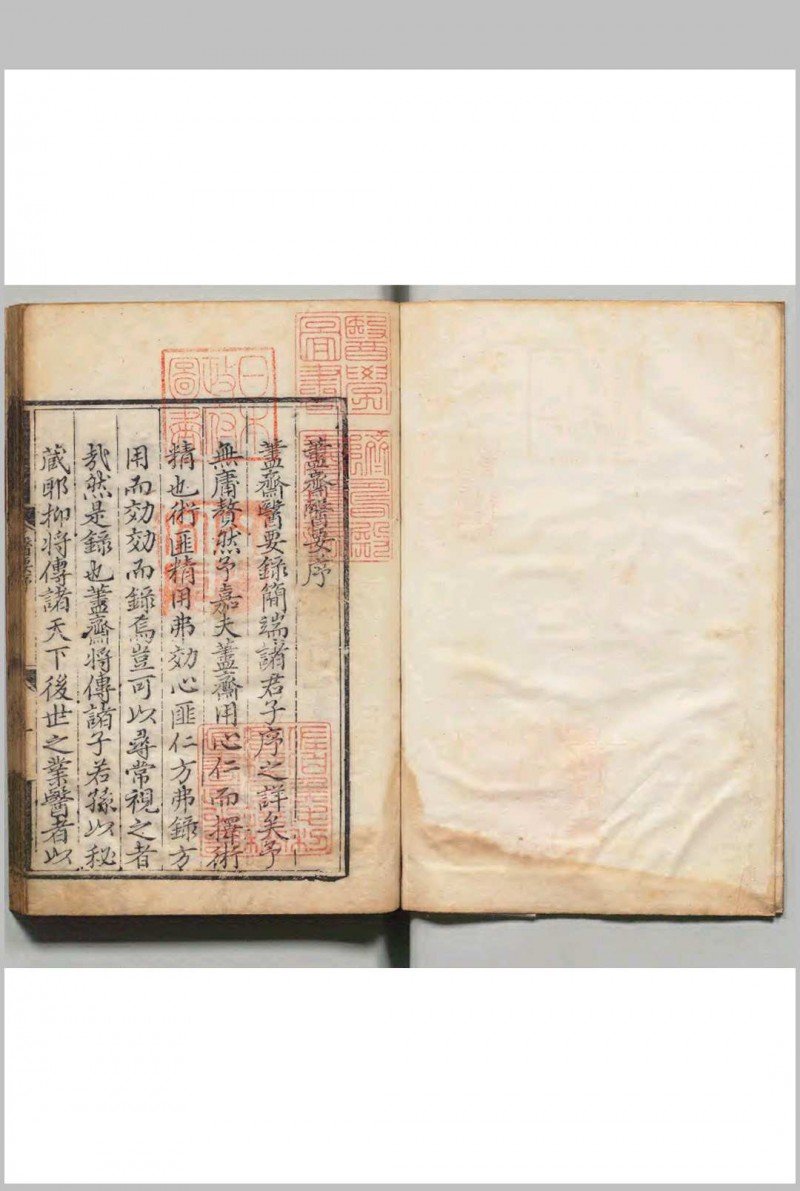 藎齋醫要序
藎齋醫要錄簡端諸君子序之詳矣予
無庸贅然予嘉夫藎齋用心仁而擇術
精也術匪精用弗効心匪仁方弗錄方
用而効効而錄焉豈可以尋常視之者
哉然是錄也藎齋將傳諸子若孫以秘
藏耶抑將傳諸天下後世之業醫者以
醫要序
日本
政府
圖書
醫學
圖書